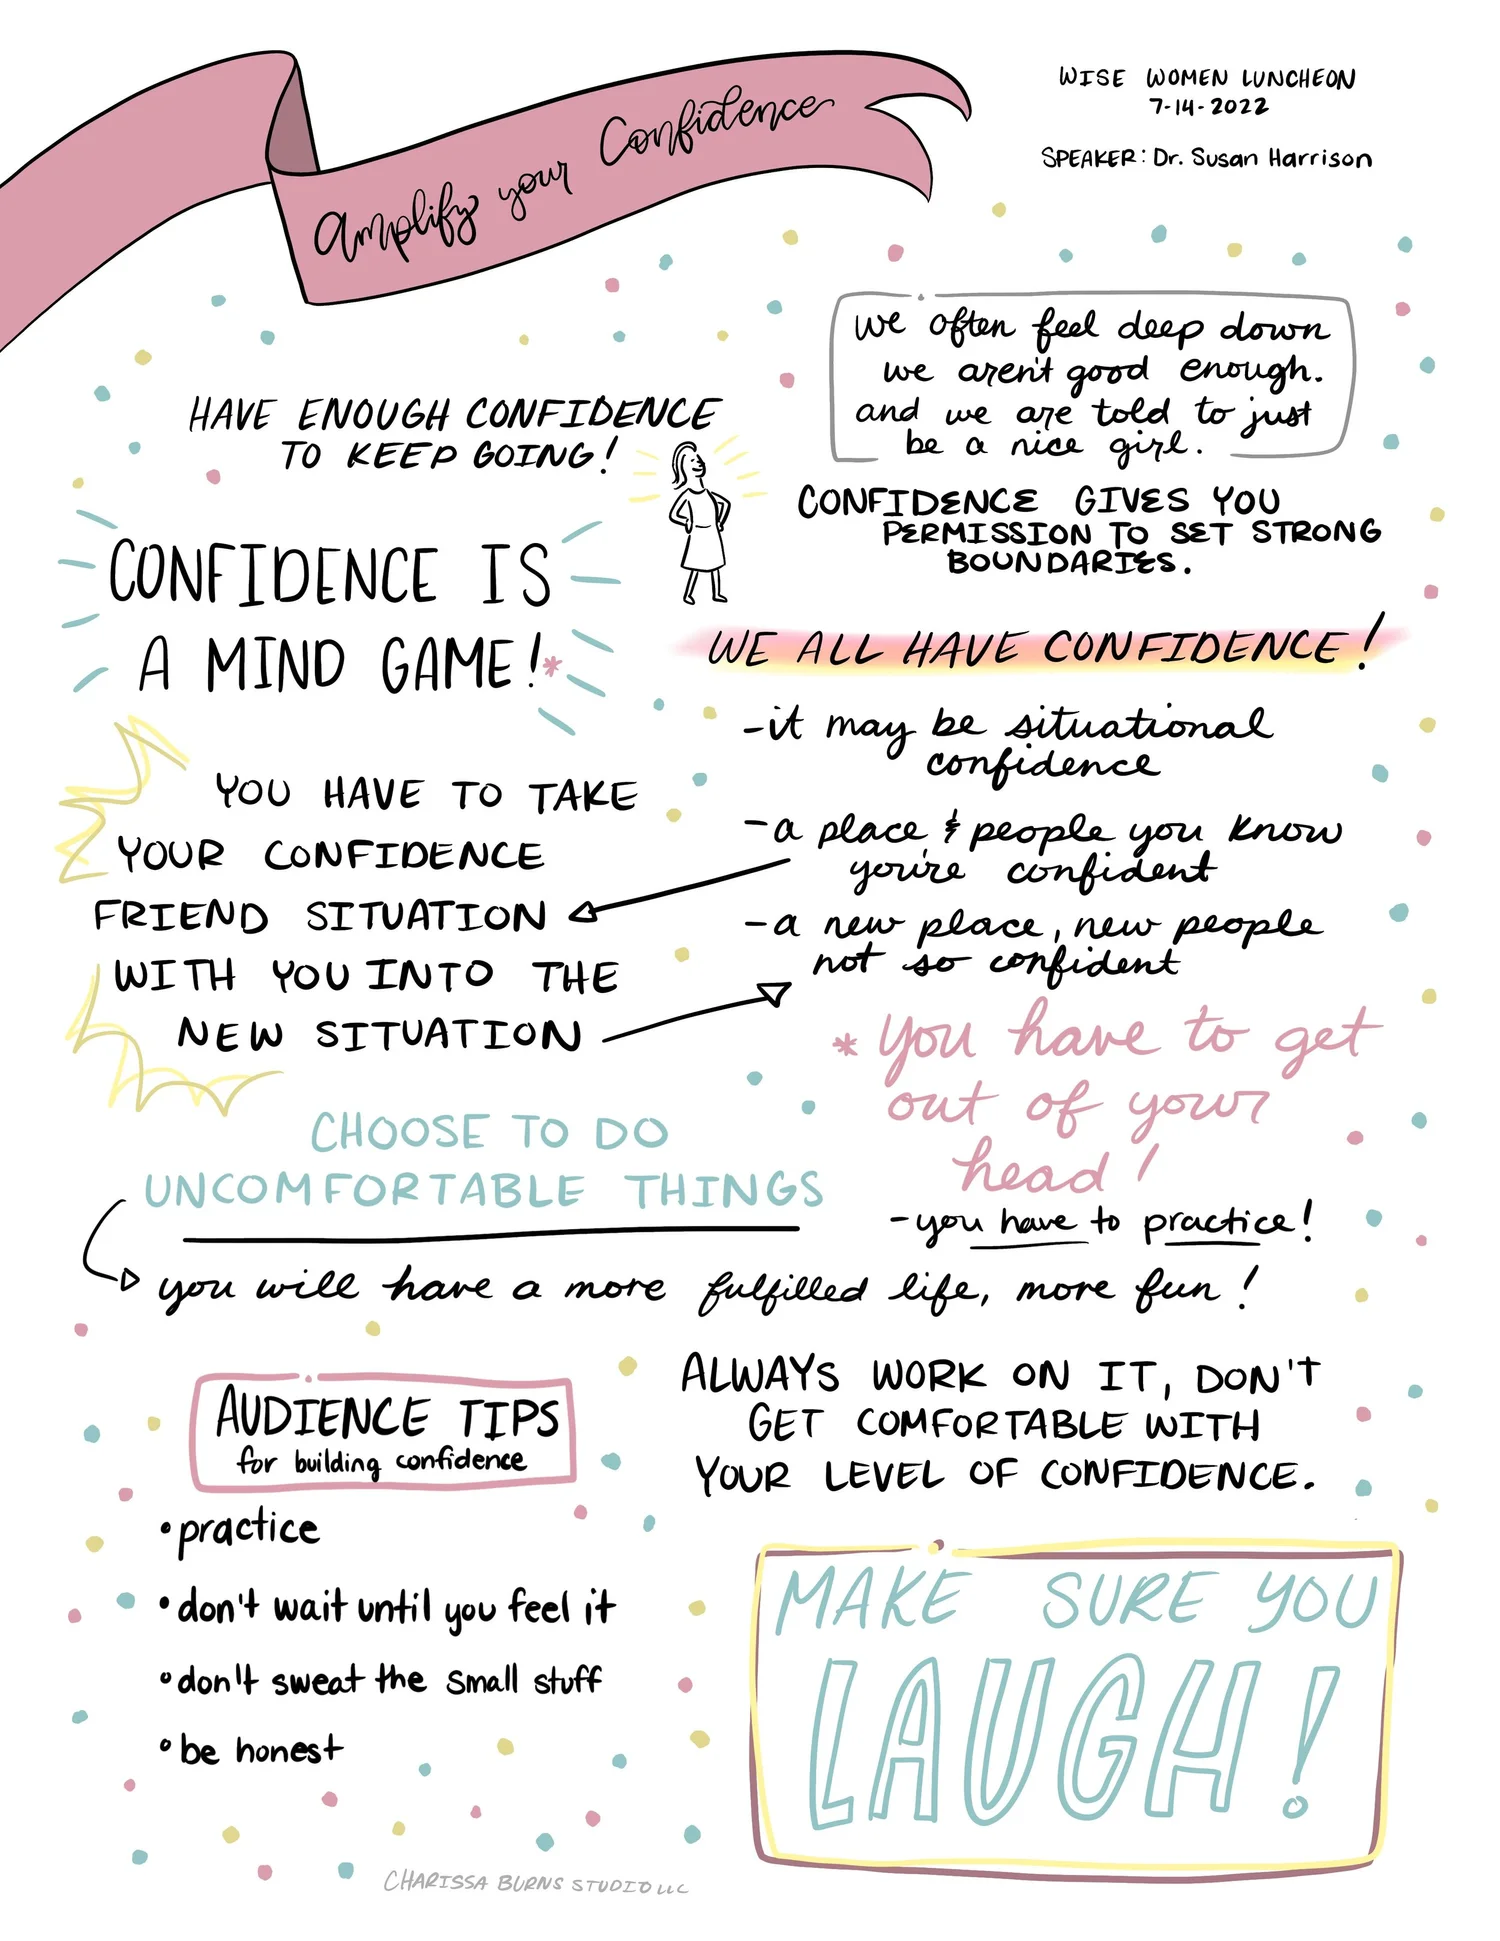 Amplify your Confidence
WISE WOMEN LUNCHEON
7-14-2022
SPEAKER: Dr. Susan Harrison
we often feel deep down
we aren't good enough.
and we are told to just
be a nice girl.
HAVE ENOUGH CONFIDENCE
TO KEEP GOING!
CONFIDENCE GIVES YOU
PERMISSION TO SET STRONG
BOUNDARIES.
CONFIDENCE IS
A MIND GAME!*
WE ALL HAVE CONFIDENCE!
-it may be situational
confidence
-a place & people you know
you're confident
-a new place, new people
not so confident
YOU HAVE TO TAKE
YOUR CONFIDENCE
FRIEND SITUATION
WITH YOU INTO THE
NEW SITUATION
*you have to get
out of your
head!
-you have to practice!
CHOOSE TO DO
UNCOMFORTABLE THINGS
you will have a more fulfilled life, more fun!
AUDIENCE TIPS
for building confidence
•practice
•don't wait until you feel it
•don't sweat the small stuff
•be honest
ALWAYS WORK ON IT, DON'T
GET COMFORTABLE WITH
YOUR LEVEL OF CONFIDENCE.
MAKE SURE YOU
LAUGH!
CHARISSA BURNS STUDIO LLC